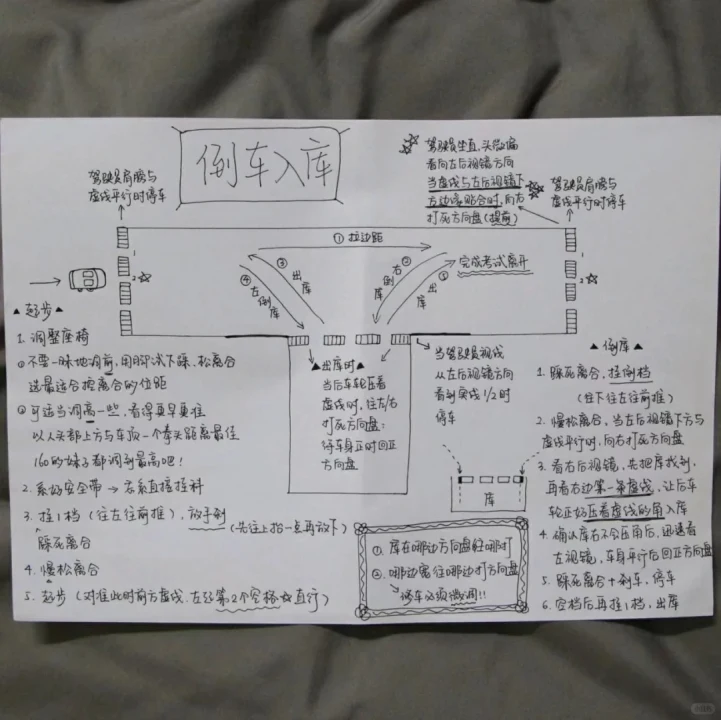 倒车入库
驾驶员肩膀与
虚线平行时停车
驾驶员坐直,头微偏
看向左后视镜方向
当虚线与左后视镜下
方边缘贴合时,向右
打死方向盘(提前)
驾驶员肩膀与
虚线平行时停车
① 拉边距
③ 出库
④ 左倒库
② 右倒库
⑤ 出库
完成考试离开
1
2
1
2
▲起步▲
1. 调整座椅
① 不要一味地调前,用脚试下踩、松离合
选最适合控离合的位距
② 可适当调高一些,看得更早更准
以人头部上方与车顶一个拳头距离最佳
160的妹子都调到最高吧!
2. 系好安全带 → 忘系直接挂科
3. 挂1档(往左往前推),放手刹(先往上抬一点再放下)
踩死离合
4. 慢松离合
5. 起步(对准此时前方虚线,左起第2个空格☆直行)
▲出库时▲
当后车轮压着
虚线时,往左/右
打死方向盘;
待车身正时回正
方向盘
当驾驶员视线
从左后视镜方向
看到实线1/2时
停车
库
① 库在哪边方向盘往哪打
② 哪边宽往哪边打方向盘
停车必须微调!!
▲倒库▲
1. 踩死离合,挂倒档
(往下往左往前推)
2. 慢松离合,当左后视镜下方与
虚线平行时,向右打死方向盘
3. 看右后视镜,先把库找到,
再看右边第一条虚线,让后车
轮正好压着虚线的角入库
4. 确认库右不会压角后,迅速看
左视镜,车身平行后回正方向盘
5. 踩死离合+刹车,停车
6. 空档后再挂1档,出库